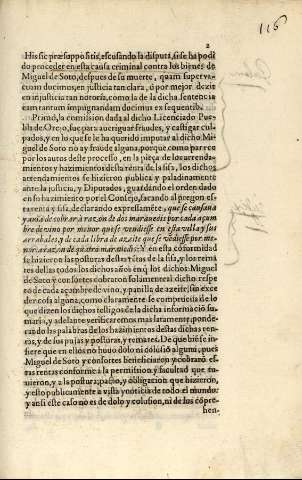 116
2
His sic præsuppositis, escusando la disputa, si se ha podi
do proceder en esta causa criminal contra los bienes de
Miguel de Soto, despues de su muerte, quam superva-
cuam ducimos, en justicia tan clara, ò por mejor dezir
en injusticia tan notoria, como la de la dicha sentencia
eam tantum impugnandam ducimus ex sequentib.
Primò, la comission dada al dicho Licenciado Pue-
bla de Orejo, fue para averiguar fraudes, y castigar cul-
pados, y en lo que se ha querido imputar al dicho Mi-
guel de Soto no ay fraude alguna, porque como parece
por los autos deste processo, en la pieça de los arrenda-
mientos y hazimientos desta renta de la sisa, los dichos
arrendamientos se hizieron publica y paladinamente
ante la justicia, y Diputados, guardando el orden dado
en su hazimiento por el Consejo, sacando al pregon es-
ta renta y sisa, declarando expressamẽte, que se causaua
y auia de cobrar à razon de dos marauedis por cada açum
bre de vino por menor que se vendiesse en esta villa y sus
arrabales, y de cada libra de azeite que se vẽdiesse por me-
nor, à razon de quatro marauedis: Y en esta cõformidad
se hizieron las posturas destas rẽtas de la sisa, y los rema
tes dellas todos los dichos años en q̃ los dichos Miguel
de Soto y consortes cobraron solamente al dicho respe
to de cada açumbre de vino, y panilla de azeite, sin exce
der cosa alguna, como claramente se comprueua de lo
que dizen los dichos testigos de la dicha informaciõ su-
maria, y adelante verificaremos mas largamente, ponde-
rando las palabras de los hazimientos destas dichas ren-
tas, y de las pujas y posturas, y remates. De que bie se in-
fiere que en ellos no huuo dolo ni colusiõ alguna, pues
Miguel de Soto y consortes beneficiaron y cobrarõ es-
tas rentas conforme à la permission y facultad que tu-
uieron, y a la postura, pacto, y obligacion que hizieron,
y esto publicamente à vista y noticia de todo el mundo:
y ansi este caso no es de dolo y colusion, ni de los cõpre-
hen-